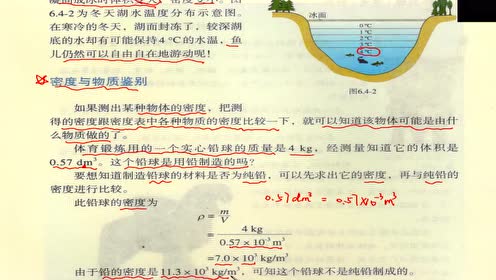 凝固成冰的体积变大，密度变小。图
6.4-2 为冬天湖水温度分布示意图。
在寒冷的冬天，湖面封冻了，较深湖
底的水却有可能保持 4 ℃的水温，鱼
儿仍然可以自由自在地游动呢！
冰面
0 ℃
1 ℃
2 ℃
3 ℃
4 ℃
图6.4-2
密度与物质鉴别
如果测出某种物体的密度，把测
得的密度跟密度表中各种物质的密度比较一下，就可以知道该物体可能是由什
么物质做的了。
体育锻炼用的一个实心铅球的质量是 4 kg，经测量知道它的体积是
0.57 dm³。这个铅球是用铅制造的吗？
要想知道制造铅球的材料是否为纯铅，可以先求出它的密度，再与纯铅的
密度进行比较。
0.57dm³ = 0.57×10⁻³m³
此铅球的密度为
ρ = m/V
= 4 kg / 0.57 × 10⁻³ m³
=7.0 × 10³ kg/m³
由于铅的密度是 11.3 × 10³ kg/m³，可知这个铅球不是纯铅制成的。